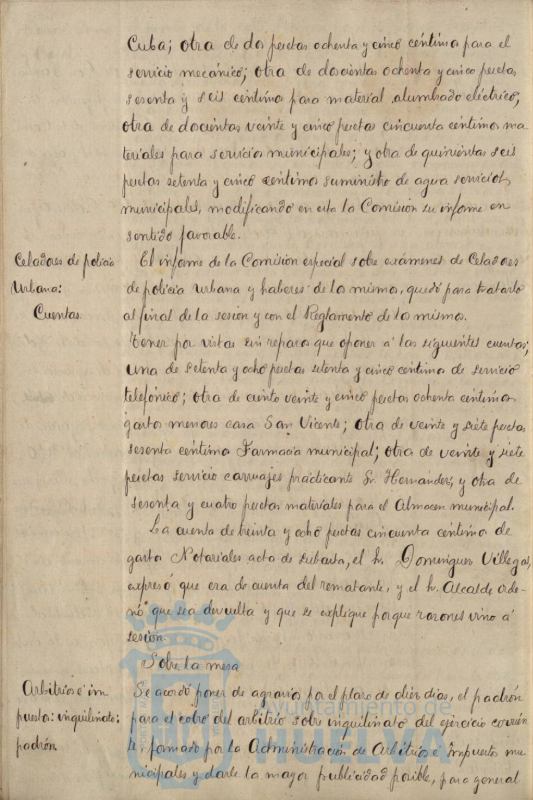 Cuba; otra de dos pesetas ochenta y cinco céntimos para el
servicio mecánico; otra de doscientas ochenta y cinco pesetas
sesenta y seis centimos para material alumbrado eléctrico;
otra de doscientas veinte y cinco pesetas cincuenta centimos ma-
teriales para servicios municipales; y otra de quinientas seis
pesetas setenta y cinco centimos suministro de agua servicios
municipales, modificando en esta la Comision su informe en
sentido favorable.
Celadores de policia
Urbana:
El informe de la Comision especial sobre exámenes de Celadores
de policia urbana y haberes de los mismos, quedó para tratarlo
al final de la sesion y con el Reglamento de los mismos.
Cuentas.
Tener por vistas sin reparos que oponer á las siguientes cuentas;
una de setenta y ocho pesetas setenta y cinco centimos de servicio
telefónico; otra de ciento veinte y cinco pesetas ochenta centimos
gastos menores casa San Vicente; otra de veinte y siete pesetas
sesenta centimos Farmacia municipal; otra de veinte y siete
pesetas servicio carruajes practicante Sr. Hernandez; y otra de
sesenta y cuatro pesetas materiales para el Almacen municipal.
La cuenta de treinta y ocho pesetas cincuenta centimos de
gastos Notariales acta de subasta, el Sr. Dominguez Villegas,
expresó que era de cuenta del rematante, y el Sr. Alcalde orde-
nó que sea devuelta y que se explique porque razones vino á
sesion.
Sobre la mesa
Arbitrios é im
puesto: inquilinato:
padrón.
Se acordó poner de agravios por el plazo de diez dias, el padrón
para el cobro del arbitrio sobre inquilinato del ejercicio corrien
te formado por la Administración de Arbitrios é Impuestos mu-
nicipales y darle la mayor publicidad posible, para general
Ayuntamiento de
HUELVA